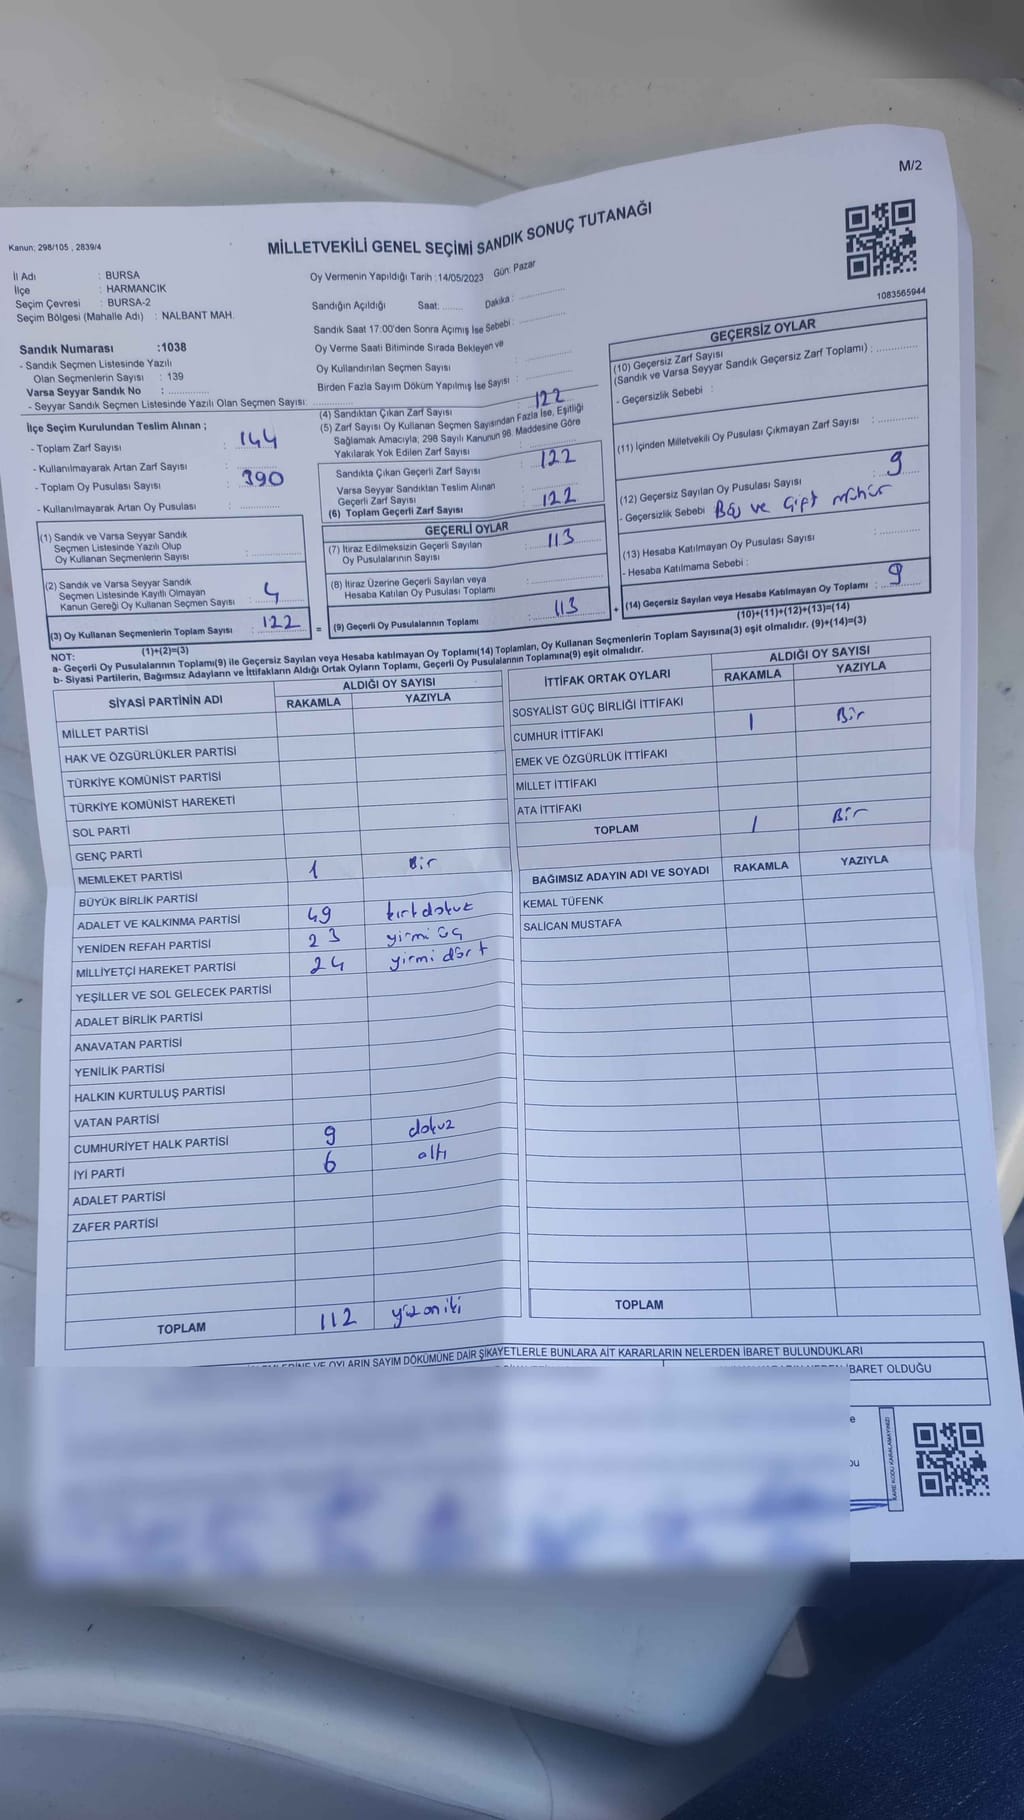 M/2
Kanun: 298/105 , 2839/4
MİLLETVEKİLİ GENEL SEÇİMİ SANDIK SONUÇ TUTANAĞI
1083565944
İl Adı : BURSA
İlçe : HARMANCIK
Seçim Çevresi : BURSA-2
Seçim Bölgesi (Mahalle Adı) : NALBANT MAH.
Sandık Numarası :1038
- Sandık Seçmen Listesinde Yazılı
Olan Seçmenlerin Sayısı : 139
Varsa Seyyar Sandık No :
- Seyyar Sandık Seçmen Listesinde Yazılı Olan Seçmen Sayısı:
Oy Vermenin Yapıldığı Tarih :14/05/2023 Gün: Pazar
Sandığın Açıldığı Saat: Dakika :
Sandık Saat 17:00'den Sonra Açımış İse Sebebi :
Oy Verme Saati Bitiminde Sırada Bekleyen ve
Oy Kullandırılan Seçmen Sayısı :
Birden Fazla Sayım Döküm Yapılmış İse Sayısı :
İlçe Seçim Kurulundan Teslim Alınan ;
- Toplam Zarf Sayısı : 144
- Kullanılmayarak Artan Zarf Sayısı :
- Toplam Oy Pusulası Sayısı : 390
- Kullanılmayarak Artan Oy Pusulası :
(1) Sandık ve Varsa Seyyar Sandık
Seçmen Listesinde Yazılı Olup
Oy Kullanan Seçmenlerin Sayısı :
(2) Sandık ve Varsa Seyyar Sandık
Seçmen Listesinde Kayıtlı Olmayan
Kanun Gereği Oy Kullanan Seçmen Sayısı : 4
(3) Oy Kullanan Seçmenlerin Toplam Sayısı : 122
(1)+(2)=(3)
(4) Sandıktan Çıkan Zarf Sayısı : 122
(5) Zarf Sayısı Oy Kullanan Seçmen Sayısından Fazla İse, Eşitliği
Sağlamak Amacıyla, 298 Sayılı Kanunun 98. Maddesine Göre
Yakılarak Yok Edilen Zarf Sayısı :
Sandıkta Çıkan Geçerli Zarf Sayısı : 122
Varsa Seyyar Sandıktan Teslim Alınan
Geçerli Zarf Sayısı :
(6) Toplam Geçerli Zarf Sayısı : 122
GEÇERLİ OYLAR
(7) İtiraz Edilmeksizin Geçerli Sayılan
Oy Pusulalarının Sayısı : 113
(8) İtiraz Üzerine Geçerli Sayılan veya
Hesaba Katılan Oy Pusulası Toplamı :
= (9) Geçerli Oy Pusulalarının Toplamı : 113
GEÇERSİZ OYLAR
(10) Geçersiz Zarf Sayısı
(Sandık ve Varsa Seyyar Sandık Geçersiz Zarf Toplamı) :
- Geçersizlik Sebebi :
(11) İçinden Milletvekili Oy Pusulası Çıkmayan Zarf Sayısı :
(12) Geçersiz Sayılan Oy Pusulası Sayısı : 9
- Geçersizlik Sebebi Boş ve Çift mühür
(13) Hesaba Katılmayan Oy Pusulası Sayısı :
- Hesaba Katılmama Sebebi :
+ (14) Geçersiz Sayılan veya Hesaba Katılmayan Oy Toplamı : 9
(10)+(11)+(12)+(13)=(14)
NOT:
a- Geçerli Oy Pusulalarının Toplamı(9) ile Geçersiz Sayılan veya Hesaba katılmayan Oy Toplamı(14) Toplamları, Oy Kullanan Seçmenlerin Toplam Sayısına(3) eşit olmalıdır. (9)+(14)=(3)
b- Siyasi Partilerin, Bağımsız Adayların ve İttifakların Aldığı Ortak Oyların Toplamı, Geçerli Oy Pusulalarının Toplamına(9) eşit olmalıdır.
SİYASİ PARTİNİN ADI ALDIĞI OY SAYISI
RAKAMLA YAZIYLA
MİLLET PARTİSİ
HAK VE ÖZGÜRLÜKLER PARTİSİ
TÜRKİYE KOMÜNİST PARTİSİ
TÜRKİYE KOMÜNİST HAREKETİ
SOL PARTİ
GENÇ PARTİ
MEMLEKET PARTİSİ 1 Bir
BÜYÜK BİRLİK PARTİSİ
ADALET VE KALKINMA PARTİSİ 49 kırkdokuz
YENİDEN REFAH PARTİSİ 23 yirmi üç
MİLLİYETÇİ HAREKET PARTİSİ 24 yirmi dört
YEŞİLLER VE SOL GELECEK PARTİSİ
ADALET BİRLİK PARTİSİ
ANAVATAN PARTİSİ
YENİLİK PARTİSİ
HALKIN KURTULUŞ PARTİSİ
VATAN PARTİSİ
CUMHURİYET HALK PARTİSİ 9 dokuz
İYİ PARTİ 6 altı
ADALET PARTİSİ
ZAFER PARTİSİ
TOPLAM 112 yüzoniki
İTTİFAK ORTAK OYLARI ALDIĞI OY SAYISI
RAKAMLA YAZIYLA
SOSYALİST GÜÇ BİRLİĞİ İTTİFAKI
CUMHUR İTTİFAKI 1 Bir
EMEK VE ÖZGÜRLÜK İTTİFAKI
MİLLET İTTİFAKI
ATA İTTİFAKI
TOPLAM 1 Bir
BAĞIMSIZ ADAYIN ADI VE SOYADI RAKAMLA YAZIYLA
KEMAL TÜFENK
SALİCAN MUSTAFA
TOPLAM
VE OYLARIN SAYIM DÖKÜMÜNE DAİR ŞİKAYETLERLE BUNLARA AİT KARARLARIN NELERDEN İBARET BULUNDUKLARI
İBARET OLDUĞU
KARE KODU KARALAMAYINIZ!